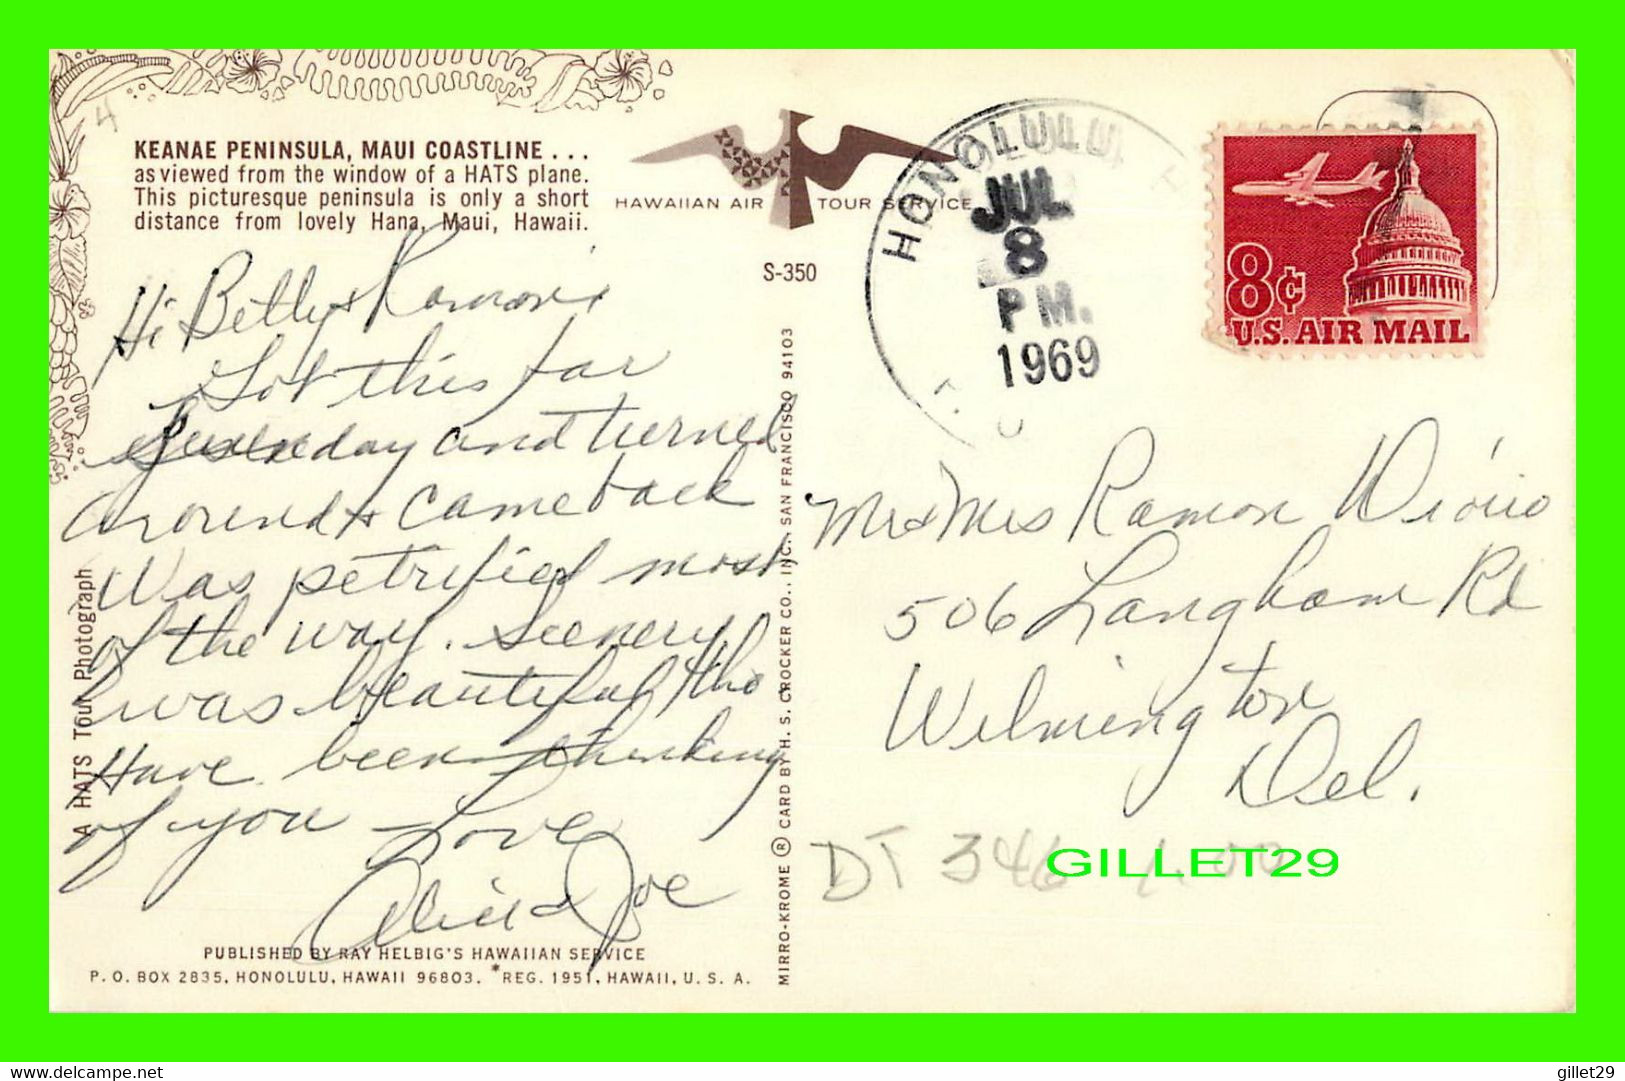 4
KEANAE PENINSULA, MAUI COASTLINE . . .
as viewed from the window of a HATS plane.
This picturesque peninsula is only a short
distance from lovely Hana, Maui, Hawaii.
HAWAIIAN AIR TOUR SERVICE
S-350
HONOLULU, H
JUL
8
PM.
1969
8¢
U.S. AIR MAIL
Hi Betty & Ramon
Got this far
day and turned
around & came back
Was petrified most
of the way. Scenery
was beautiful tho
Have been thinking
of you Love
Alice & Joe
Mr & Mrs Ramon
506 Langham Rd
Wilmington
Del.
DT 346 1.00
GILLET29
A HATS Tour Photograph
MIRRO-KROME ® CARD BY H. S. CROCKER CO., INC., SAN FRANCISCO 94103
PUBLISHED BY RAY HELBIG'S HAWAIIAN SERVICE
P. O. BOX 2835, HONOLULU, HAWAII 96803. *REG. 1951, HAWAII, U. S. A.
gillet29